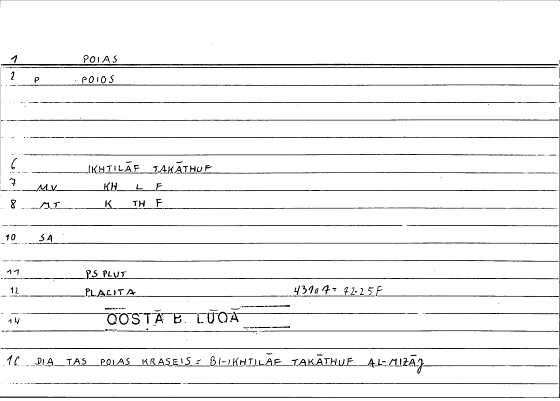 1 POIAS
2 P POIOS
6 IKHTILĀF TAKĀTHUF
7 MV KH L F
8 MT K TH F
10 SA
11 PS PLUT
12 PLACITA 431a7= 72.25F
14 QOSTĀ B. LŪQĀ
15 DIA TAS POIAS KRASEIS = BI-IKHTILĀF TAKĀTHUF AL-MIZĀJ